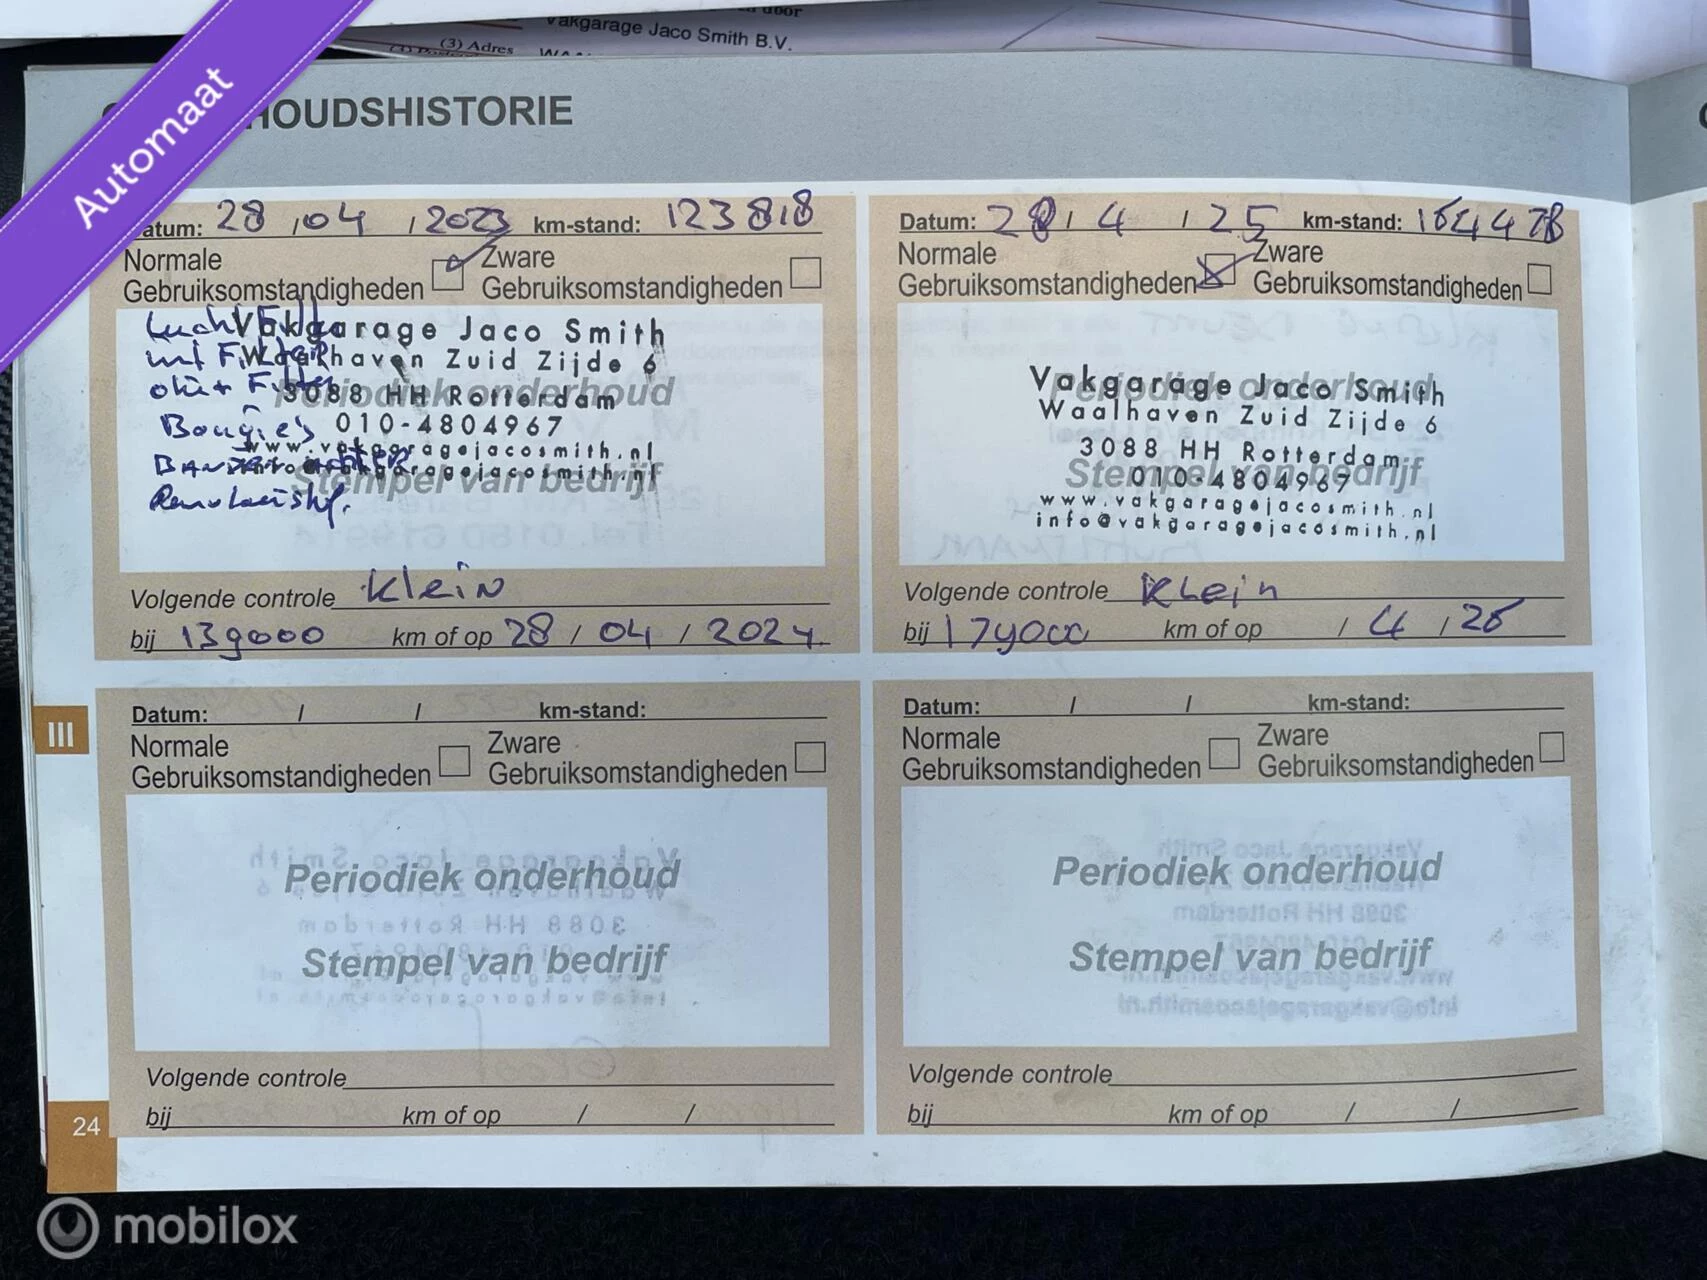 Vakgarage Jaco Smith B.V.
(3) Adres
Automaat
HOUDSHISTORIE
atum: 28 / 04 / 2023 km-stand: 123818
Normale
Gebruiksomstandigheden
Zware
Gebruiksomstandigheden
Vakgarage Jaco Smith
Waalhaven Zuid Zijde 6
3088 HH Rotterdam
010-4804967
www.vakgaragejacosmith.nl
info@vakgaragejacosmith.nl
Periodiek onderhoud
Stempel van bedrijf
Bougie's
Volgende controle Klein
bij 139000 km of op 28 / 04 / 2024
Datum: 28 / 4 / 25 km-stand: 164478
Normale
Gebruiksomstandigheden
Zware
Gebruiksomstandigheden
Vakgarage Jaco Smith
Waalhaven Zuid Zijde 6
3088 HH Rotterdam
010-4804967
www.vakgaragejacosmith.nl
info@vakgaragejacosmith.nl
Periodiek onderhoud
Stempel van bedrijf
Volgende controle Klein
bij 179000 km of op / 4 / 26
III
Datum: / / km-stand:
Normale
Gebruiksomstandigheden
Zware
Gebruiksomstandigheden
Periodiek onderhoud
Stempel van bedrijf
Volgende controle
bij km of op / /
Datum: / / km-stand:
Normale
Gebruiksomstandigheden
Zware
Gebruiksomstandigheden
Periodiek onderhoud
Stempel van bedrijf
Volgende controle
bij km of op / /
24
mobilox